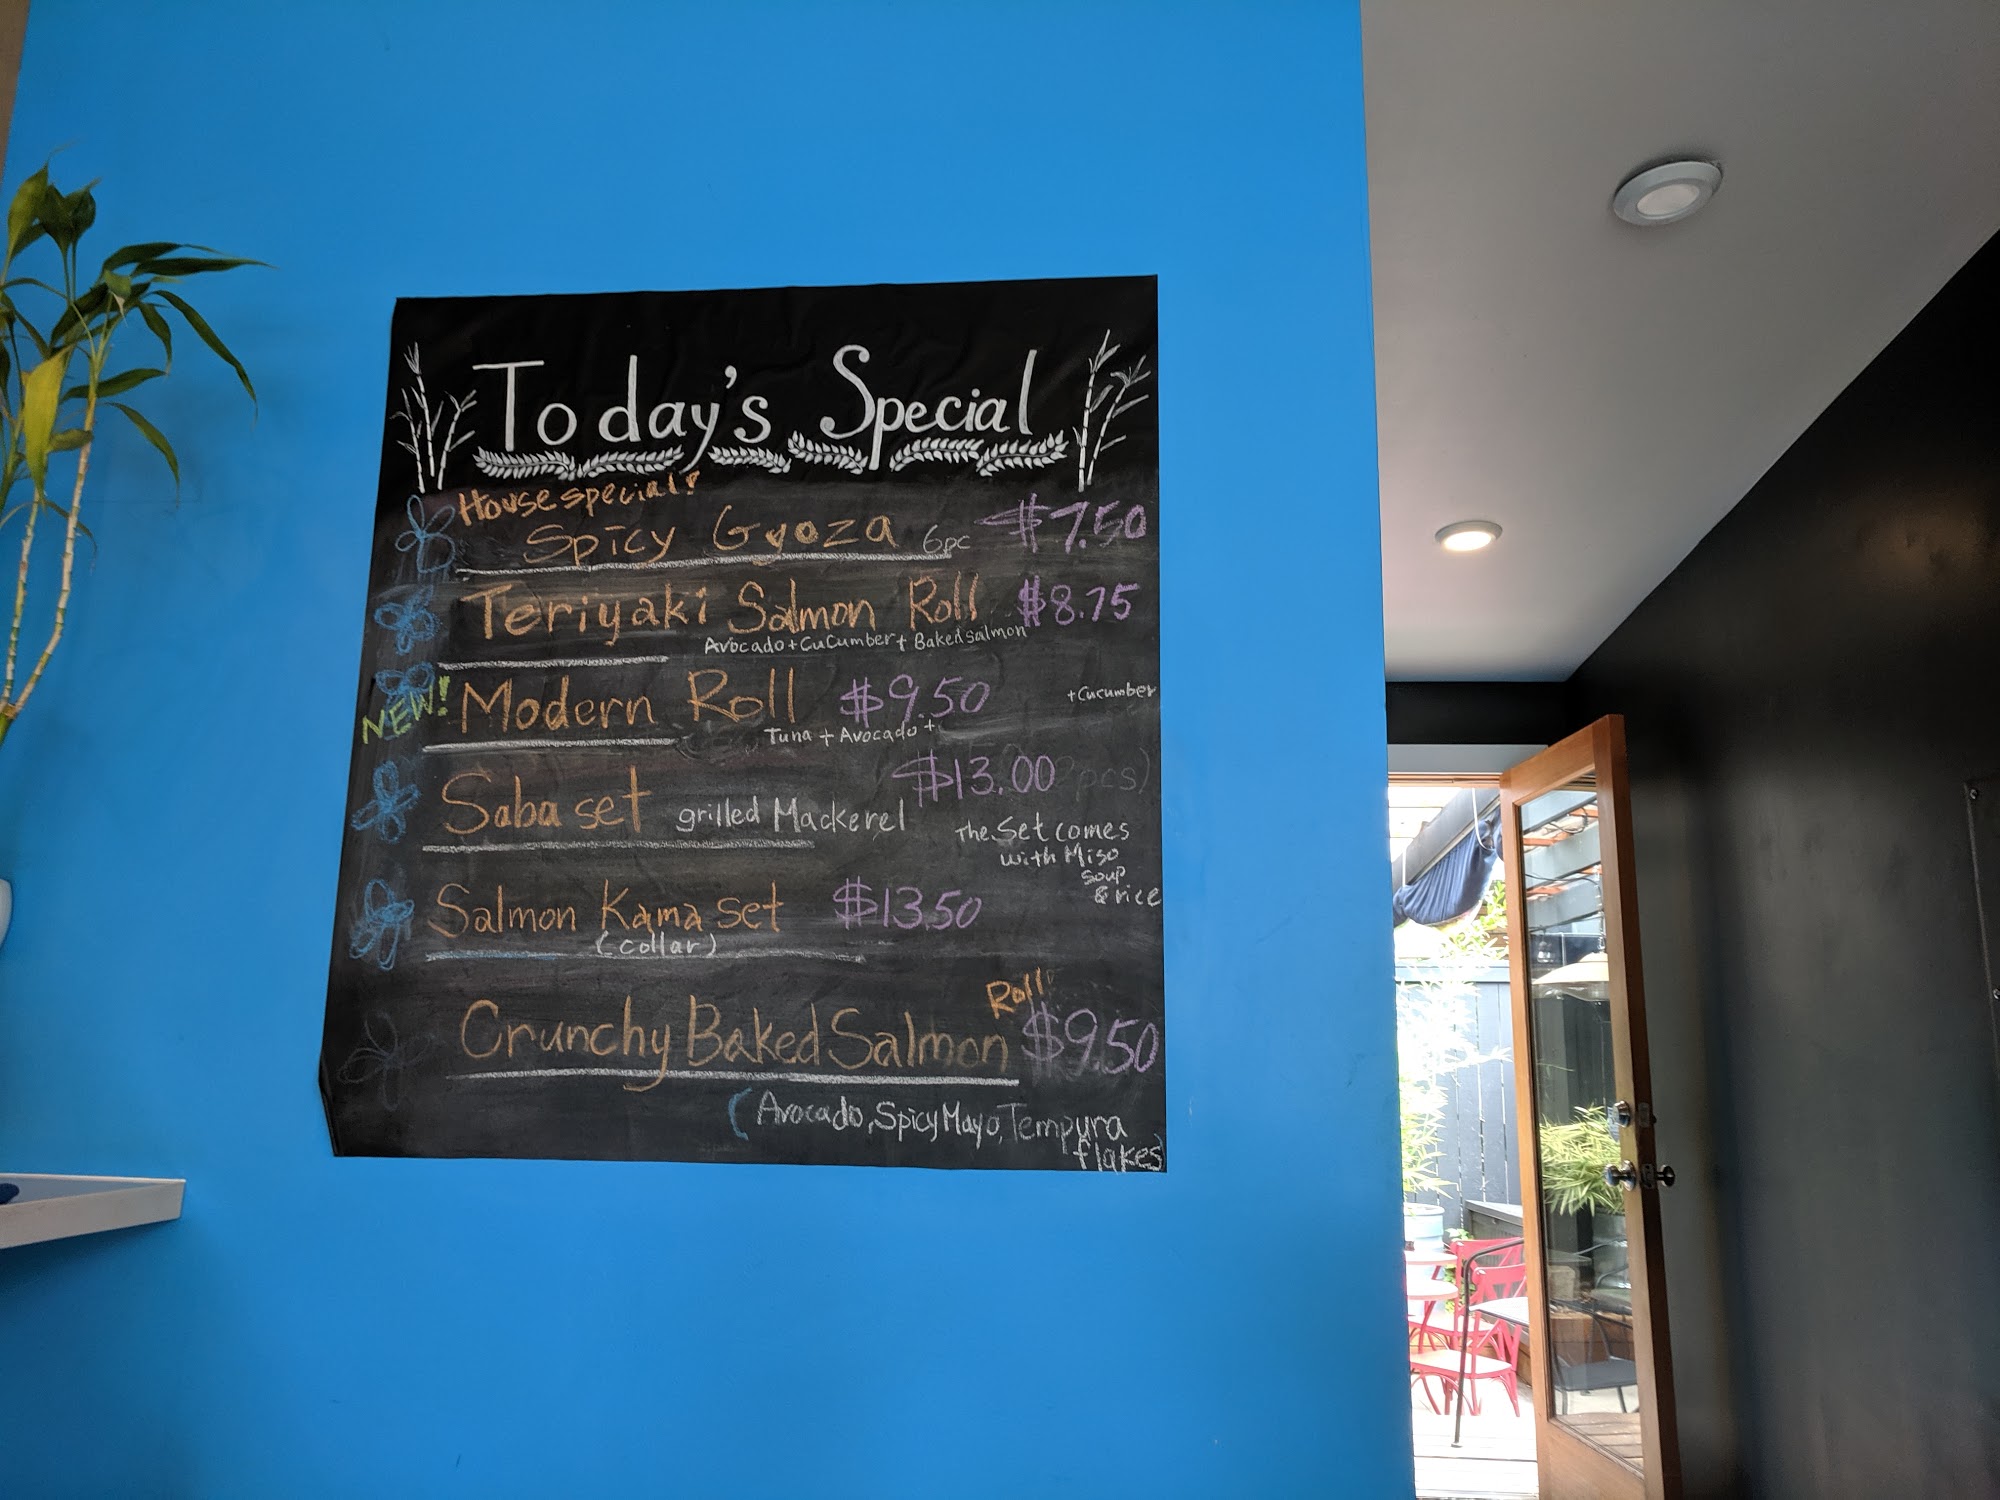 Today's Special
House special!
Spicy Gyoza 6pc $7.50
Teriyaki Salmon Roll $8.75
Avocado + CuCumber + Baked salmon
NEW! Modern Roll $9.50
Tuna + Avocado +
+ Cucumber
Saba set grilled Mackerel $13.00
pcs)
The Set comes
with Miso
soup
& rice
Salmon Kama set $13.50
(collar)
Roll
Crunchy Baked Salmon $9.50
(Avocado, Spicy Mayo, Tempura
flakes)